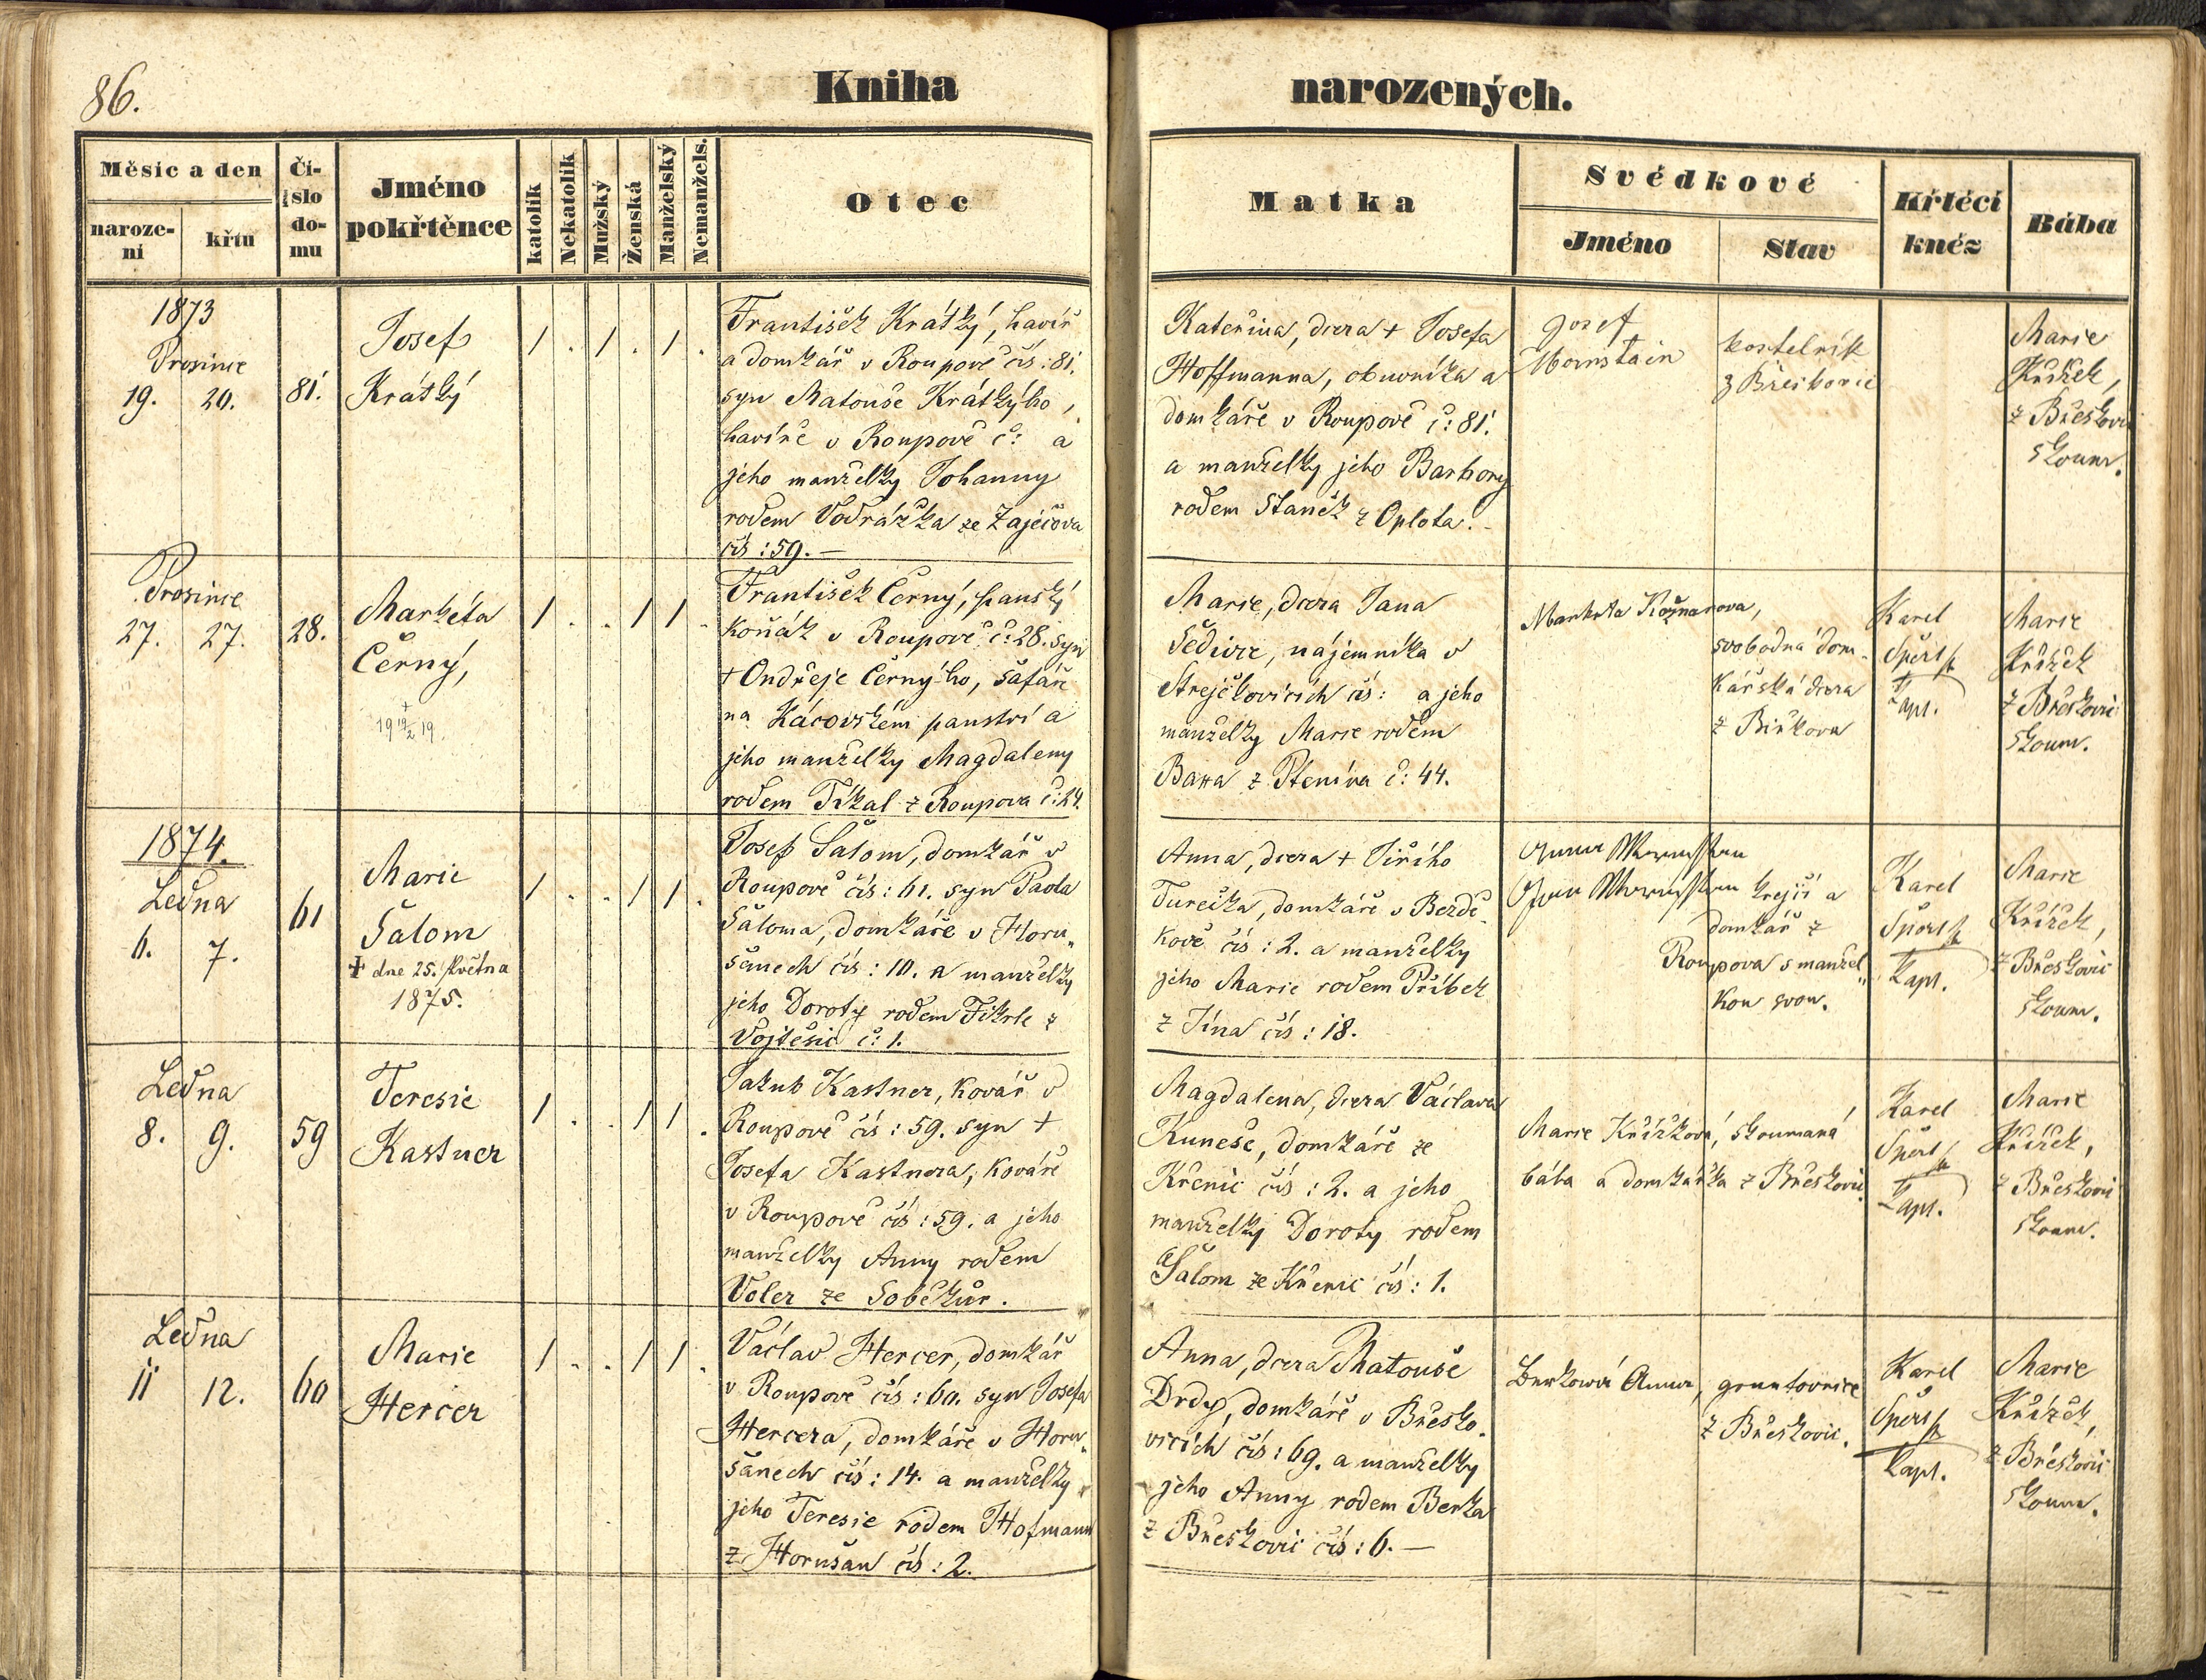 86.
Kniha narozených.
Měsíc a den
naroze-
ní
křtu
Čí-
slo
do-
mu
Jméno
pokřtěnce
katolík
Nekatolík
Mužský
Ženská
Manželský
Nemanžels.
Otec
Matka
Svědkové
Jméno
Stav
Křtěcí
kněz
Bába
1873
Prosince
19. 20.
81.
Josef
Krátký
/ . / . / .
František Krátký, havíř
a domkář v Roupově čís: 81.
syn Matouše Krátkýho,
havíře v Roupově č: a
jeho manželky Johanny
rodem Vodrážka ze Zaječova
čís: 59. —
Kateřina, dcera + Josefa
Hoffmanna, obuvníka a
domkáře v Roupově č: 81.
a manželky jeho Barbory
rodem Staněk z Oplota. -
Josef
kostelník
z Břeskovic
Marie
Křížek,
z Břeskovic
zkoum.
Prosince
27. 27.
28.
Markéta
Černý,
+
19 19/2 19.
/ . . / / .
František Černý, panský
koňák v Roupově č: 28. syn
+ Ondřeje Černýho, šafáře
na Kácovském panství a
jeho manželky Magdaleny
rodem Tikal z Roupova č: 24.
Marie, dcera Jana
Šedivce, nájemníka v
Strejčkovicích čís: a jeho
manželky Marie rodem
z Ptenína č: 44.
Markéta
svobodná dom-
kářská dcera
z Biřkova
Karel
kapl.
Marie
Křížek
z Břeskovic
zkoum.
1874.
Ledna
6. 7.
61
Marie
Šalom
+ dne 25. Května
1875.
/ . . / / .
Josef Šalom, domkář v
Roupově čís: 61. syn Pavla
Šaloma, domkáře v Horu„
šanech čís: 10. a manželky
jeho Doroty rodem Fikrle z
Vojtěšic č: 1.
Anna, dcera + Jiřího
Turečka, domkáře v Bezdě-
kově čís: 2. a manželky
jeho Marie rodem Příbek
z Jína čís: 18.
krejčí a
domkář z
Roupova s manžel„
kou svou.
Karel
kapl.
Marie
Křížek,
z Břeskovic
zkoum.
Ledna
8. 9.
59
Teresie
Kastner
/ . . / / .
Jakub Kastner, kovář v
Roupově čís: 59. syn +
Josefa Kastnera, kováře
v Roupově čís: 59. a jeho
manželky Anny rodem
Voler ze Soběkur.
Magdalena, dcera Václava
Kuneše, domkáře ze
Křenic čís: 2. a jeho
manželky Doroty rodem
Šalom ze Křenic čís: 1.
Marie Křížková, zkoumaná
bába a domkářka z Břeskovic
Karel
kapl.
Marie
Křížek,
z Břeskovic
zkoum.
Ledna
11 12.
60
Marie
Hercer
/ . . / / .
Václav Hercer, domkář
v Roupově čís: 60. syn Josefa
Hercera, domkáře v Horu„
šanech čís: 14. a manželky
jeho Teresie rodem Hofmann
z Horušan čís: 2.
Anna, dcera Matouše
Drdy, domkáře v Břesko-
vicích čís: 69. a manželky
jeho Anny rodem Berka
z Břeskovic čís: 6. —
Berková Anna, gruntovnice
z Břeskovic.
Karel
kapl.
Marie
Křížek,
z Břeskovic
zkoum.